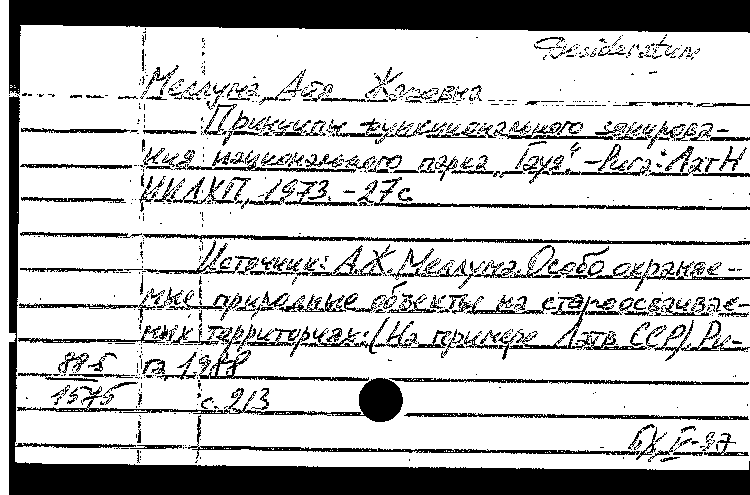 Desideratum
Меллума, Ая Жановна
Принципы функционального зонирова-
ния национального парка „Гауя“. – Рига: ЛатН
ИИЛХП, 1973. – 27с.
Источник: А.Ж. Меллума. Особо охраняе-
мые природные объекты на староосваивае-
мых территориях: (На примере Латв. ССР). Ри-
га, 1988
88-5
1575
с. 213
БХ V-97